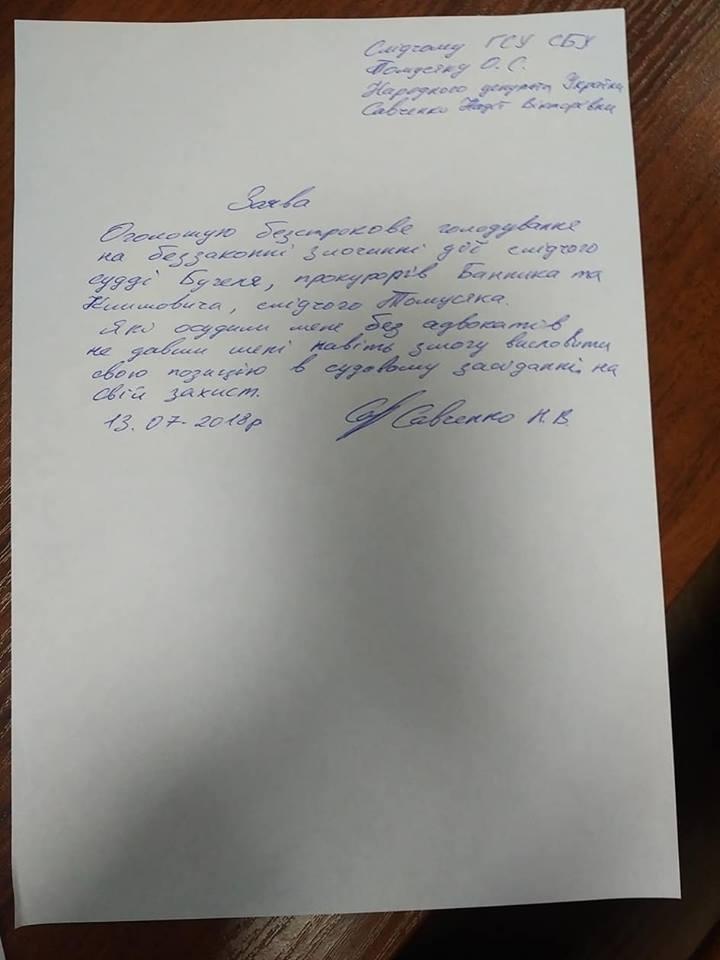 Слідчому ГСУ СБУ
Томусяку О.С.
Народного депутата України
Савченко Надії Вікторівни
Заява
Оголошую безстрокове голодування
на беззаконні злочинні дії слідчого
судді Бугеля, прокурорів Банника та
Климовича, слідчого Томусяка.
Які осудили мене без адвокатів
не давши мені навіть змогу висловити
свою позицію в судовому засіданні, на
свій захист.
13.07.2018р Савченко Н.В.